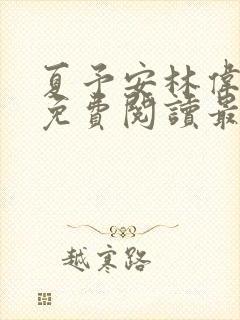 夏予安林偉
免費閱讀最
越寒路